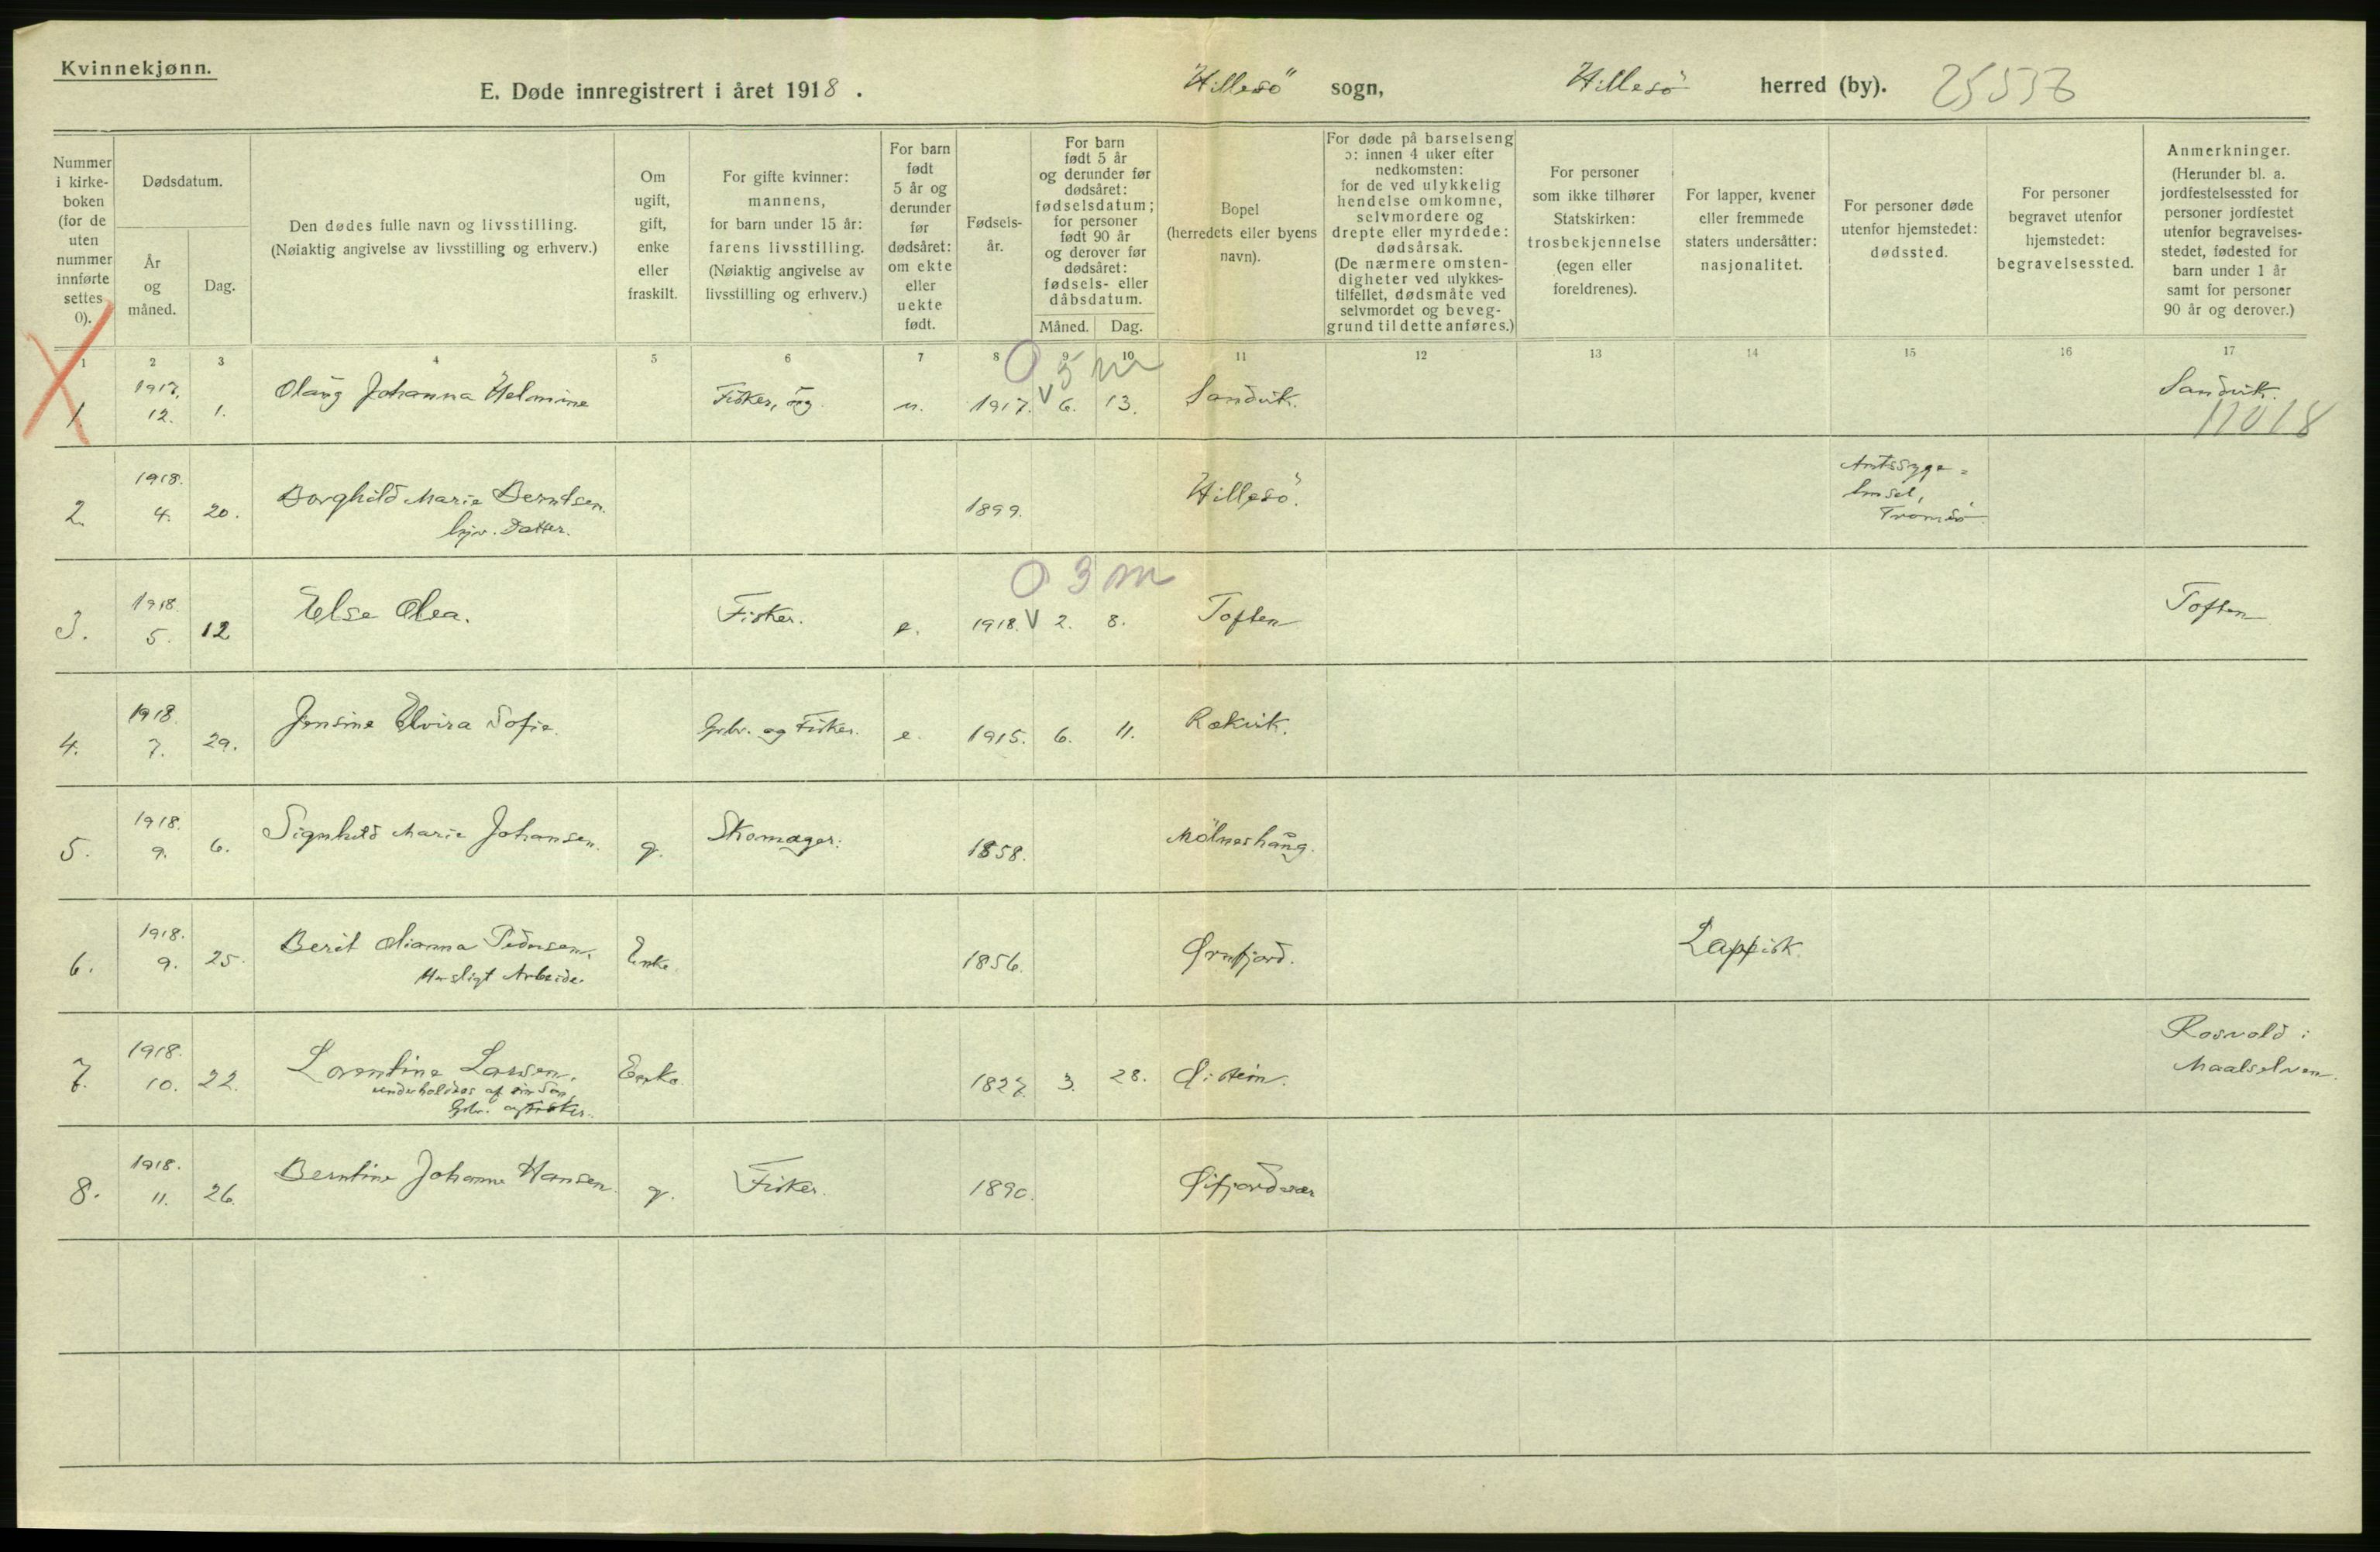 Kvinnekjønn.
E. Døde innregistrert i året 1918. Hillesö sogn, Hillesö herred (by). 25536
Nummer i kirkeboken (for de uten nummer innførte settes 0).
Dødsdatum.
År og måned.
Dag.
Den dødes fulle navn og livsstilling.
(Nøiaktig angivelse av livsstilling og erhverv.)
Om ugift, gift, enke eller fraskilt.
For gifte kvinner: mannens, for barn under 15 år: farens livsstilling. (Nøiaktig angivelse av livsstilling og erhverv.)
For barn født 5 år og derunder før dødsåret: om ekte eller uekte født.
Fødselsår.
For barn født 5 år og derunder før dødsåret: fødselsdatum; for personer født 90 år og derover før dødsåret: fødsels- eller dåbsdatum.
Måned. Dag.
Bopel (herredets eller byens navn).
For døde på barselseng ɔ: innen 4 uker efter nedkomsten: for de ved ulykkelig hendelse omkomne, selvmordere og drepte eller myrdede: dødsårsak. (De nærmere omstendigheter ved ulykkestilfellet, dødsmåte ved selvmordet og beveggrund til dette anføres.)
For personer som ikke tilhører Statskirken: trosbekjennelse (egen eller foreldrenes).
For lapper, kvener eller fremmede staters undersåtter: nasjonalitet.
For personer døde utenfor hjemstedet: dødssted.
For personer begravet utenfor hjemstedet: begravelsessted.
Anmerkninger. (Herunder bl. a. jordfestelsessted for personer jordfestet utenfor begravelsesstedet, fødested for barn under 1 år samt for personer 90 år og derover.)
1 2 3 4 5 6 7 8 9 10 11 12 13 14 15 16 17
0 5 m
1. 1917. 12. 1. Olaug Johanna Helmine Fisker, ug u. 1917. V 6. 13. Sandvik. Sandvik.
11018
2. 1918. 4. 20. Borghild Marie Berntsen. hjv. Datter. 1899. Hillesö. Amtssygehuset, Tromsö
0 3 m
3. 1918. 5. 12 Else Olea. Fisker. e. 1918. V 2. 8. Toften Toften
4. 1918. 7. 29. Jensine Elvira Sofie. Grbr. og Fisker. e. 1915. 6. 11. Rækvik.
5. 1918. 9. 6. Signhild Marie Johansen. g. Skomager. 1858. Mölneshaug.
6. 1918. 9. 25. Berit Pedersen. Husligt Arbeide. Enke. 1856. Ørnfjord. Lappisk.
7. 1918. 10. 22. Lorentine Larsen. underholdes af sin Søn, Grbr. og Fisker. Enke. 1827. 3. 28. Rosvold i Maalselven.
8. 1918. 11. 26. Berntine Johanne Hansen. g. Fisker. 1890. Øifjordvær